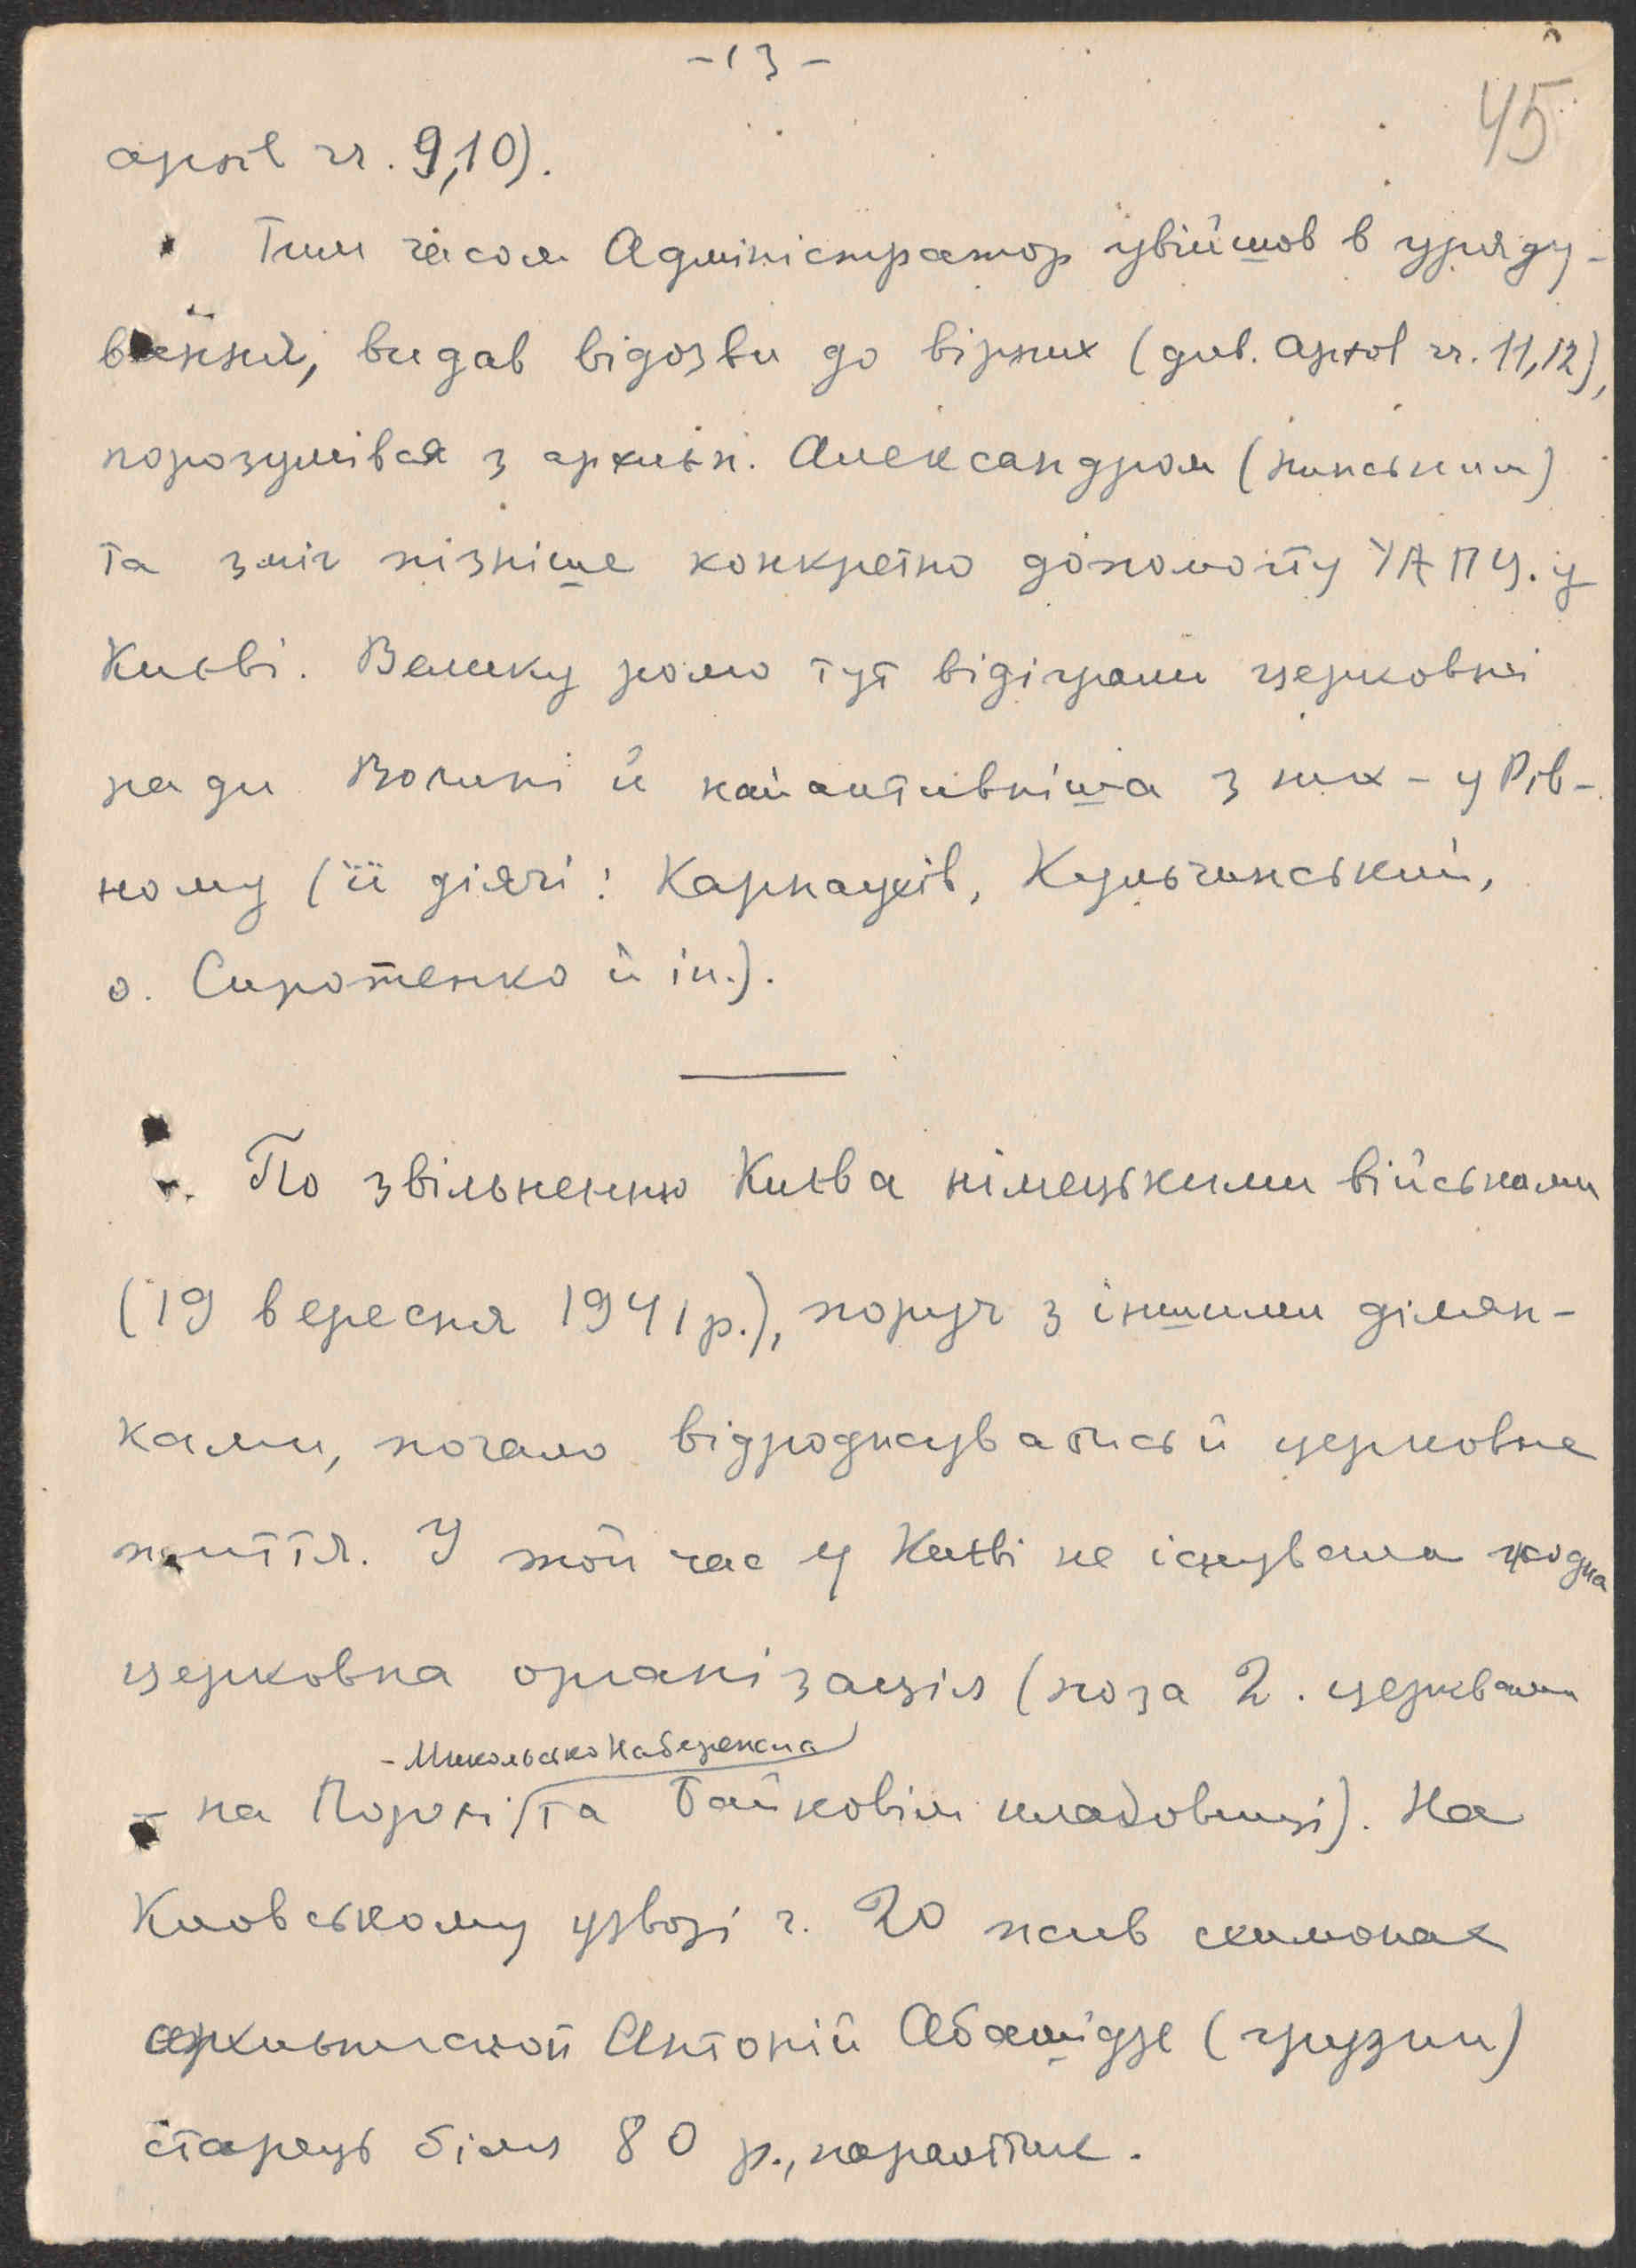 -13-
45
аркіл чч. 9,10).
Тим часом Адміністратор увійшов в уряду-
вання, видав відозви до вірних (див. аркол чч. 11,12),
порозумівся з архиєп. Александром (пинським)
та зміг пізніше конкретно допомогти УАПЦ. у
Києві. Велику ролю тут відіграли церковні
ради Волині й найактивніша з них - у Рів-
ному (її діячі: Карнаухів, Кульчинський,
о. Сиротенко й ін.).
По звільненню Києва німецькими військами
(19 вересня 1941 р.), поруч з іншими ділян-
ками, почало відроджуватись й церковне
життя. У той час у Києві не існувала жодна
церковна організація (поза 2. церквами
- Микольсько Набережна
- на Подолі та Байковім кладовищі). На
Кловському узвозі ч. 20 жив схимонах
архиєпископ Антоній Абашідзе (грузин)
старець біля 80 р., паралітик.